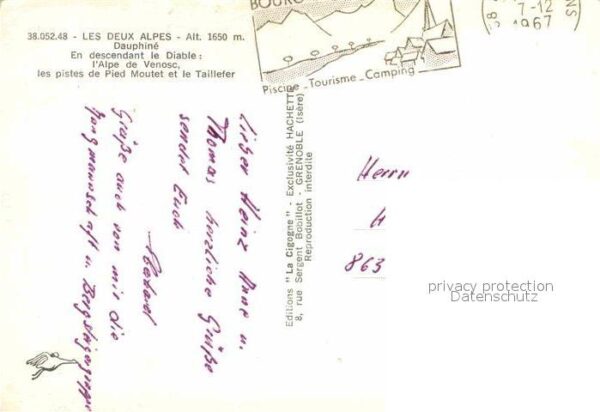 38.052.48 - LES DEUX ALPES - Alt. 1650 m.
Dauphiné
En descendant le Diable :
l'Alpe de Venosc,
les pistes de Pied Moutet et le Taillefer
BOURG
Piscine - Tourisme - Camping
7-12
1967
Lieber Heinz Anne u.
Thomas herzliche Grüße
sendet Euch
Grüße auch von mir die
u.
Editions "La Cigogne" - Exclusivité HACHETTE
8, rue Sergent Bobillot - GRENOBLE (Isère)
Reproduction interdite
Herrn
H
863
privacy protection
Datenschutz